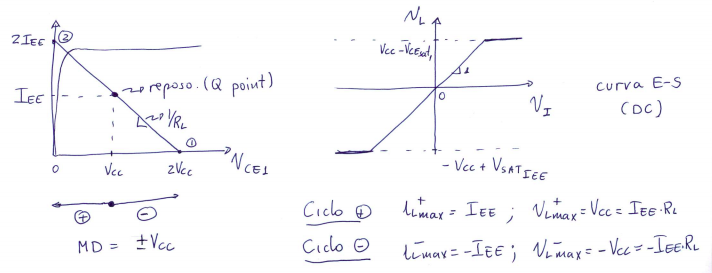 2IEE ②
IEE
reposo. (Q point)
1/RL
①
0 Vcc 2Vcc VCE1
⊕ ⊖
MD = ±Vcc
VL
Vcc - VCEsat1
1
0
VI
- Vcc + VSATIEE
curva E-S
(DC)
Ciclo ⊕ iL+max = IEE ; VL+max = Vcc = IEE·RL
Ciclo ⊖ iL-max = -IEE ; VL-max = -Vcc = -IEE·RL